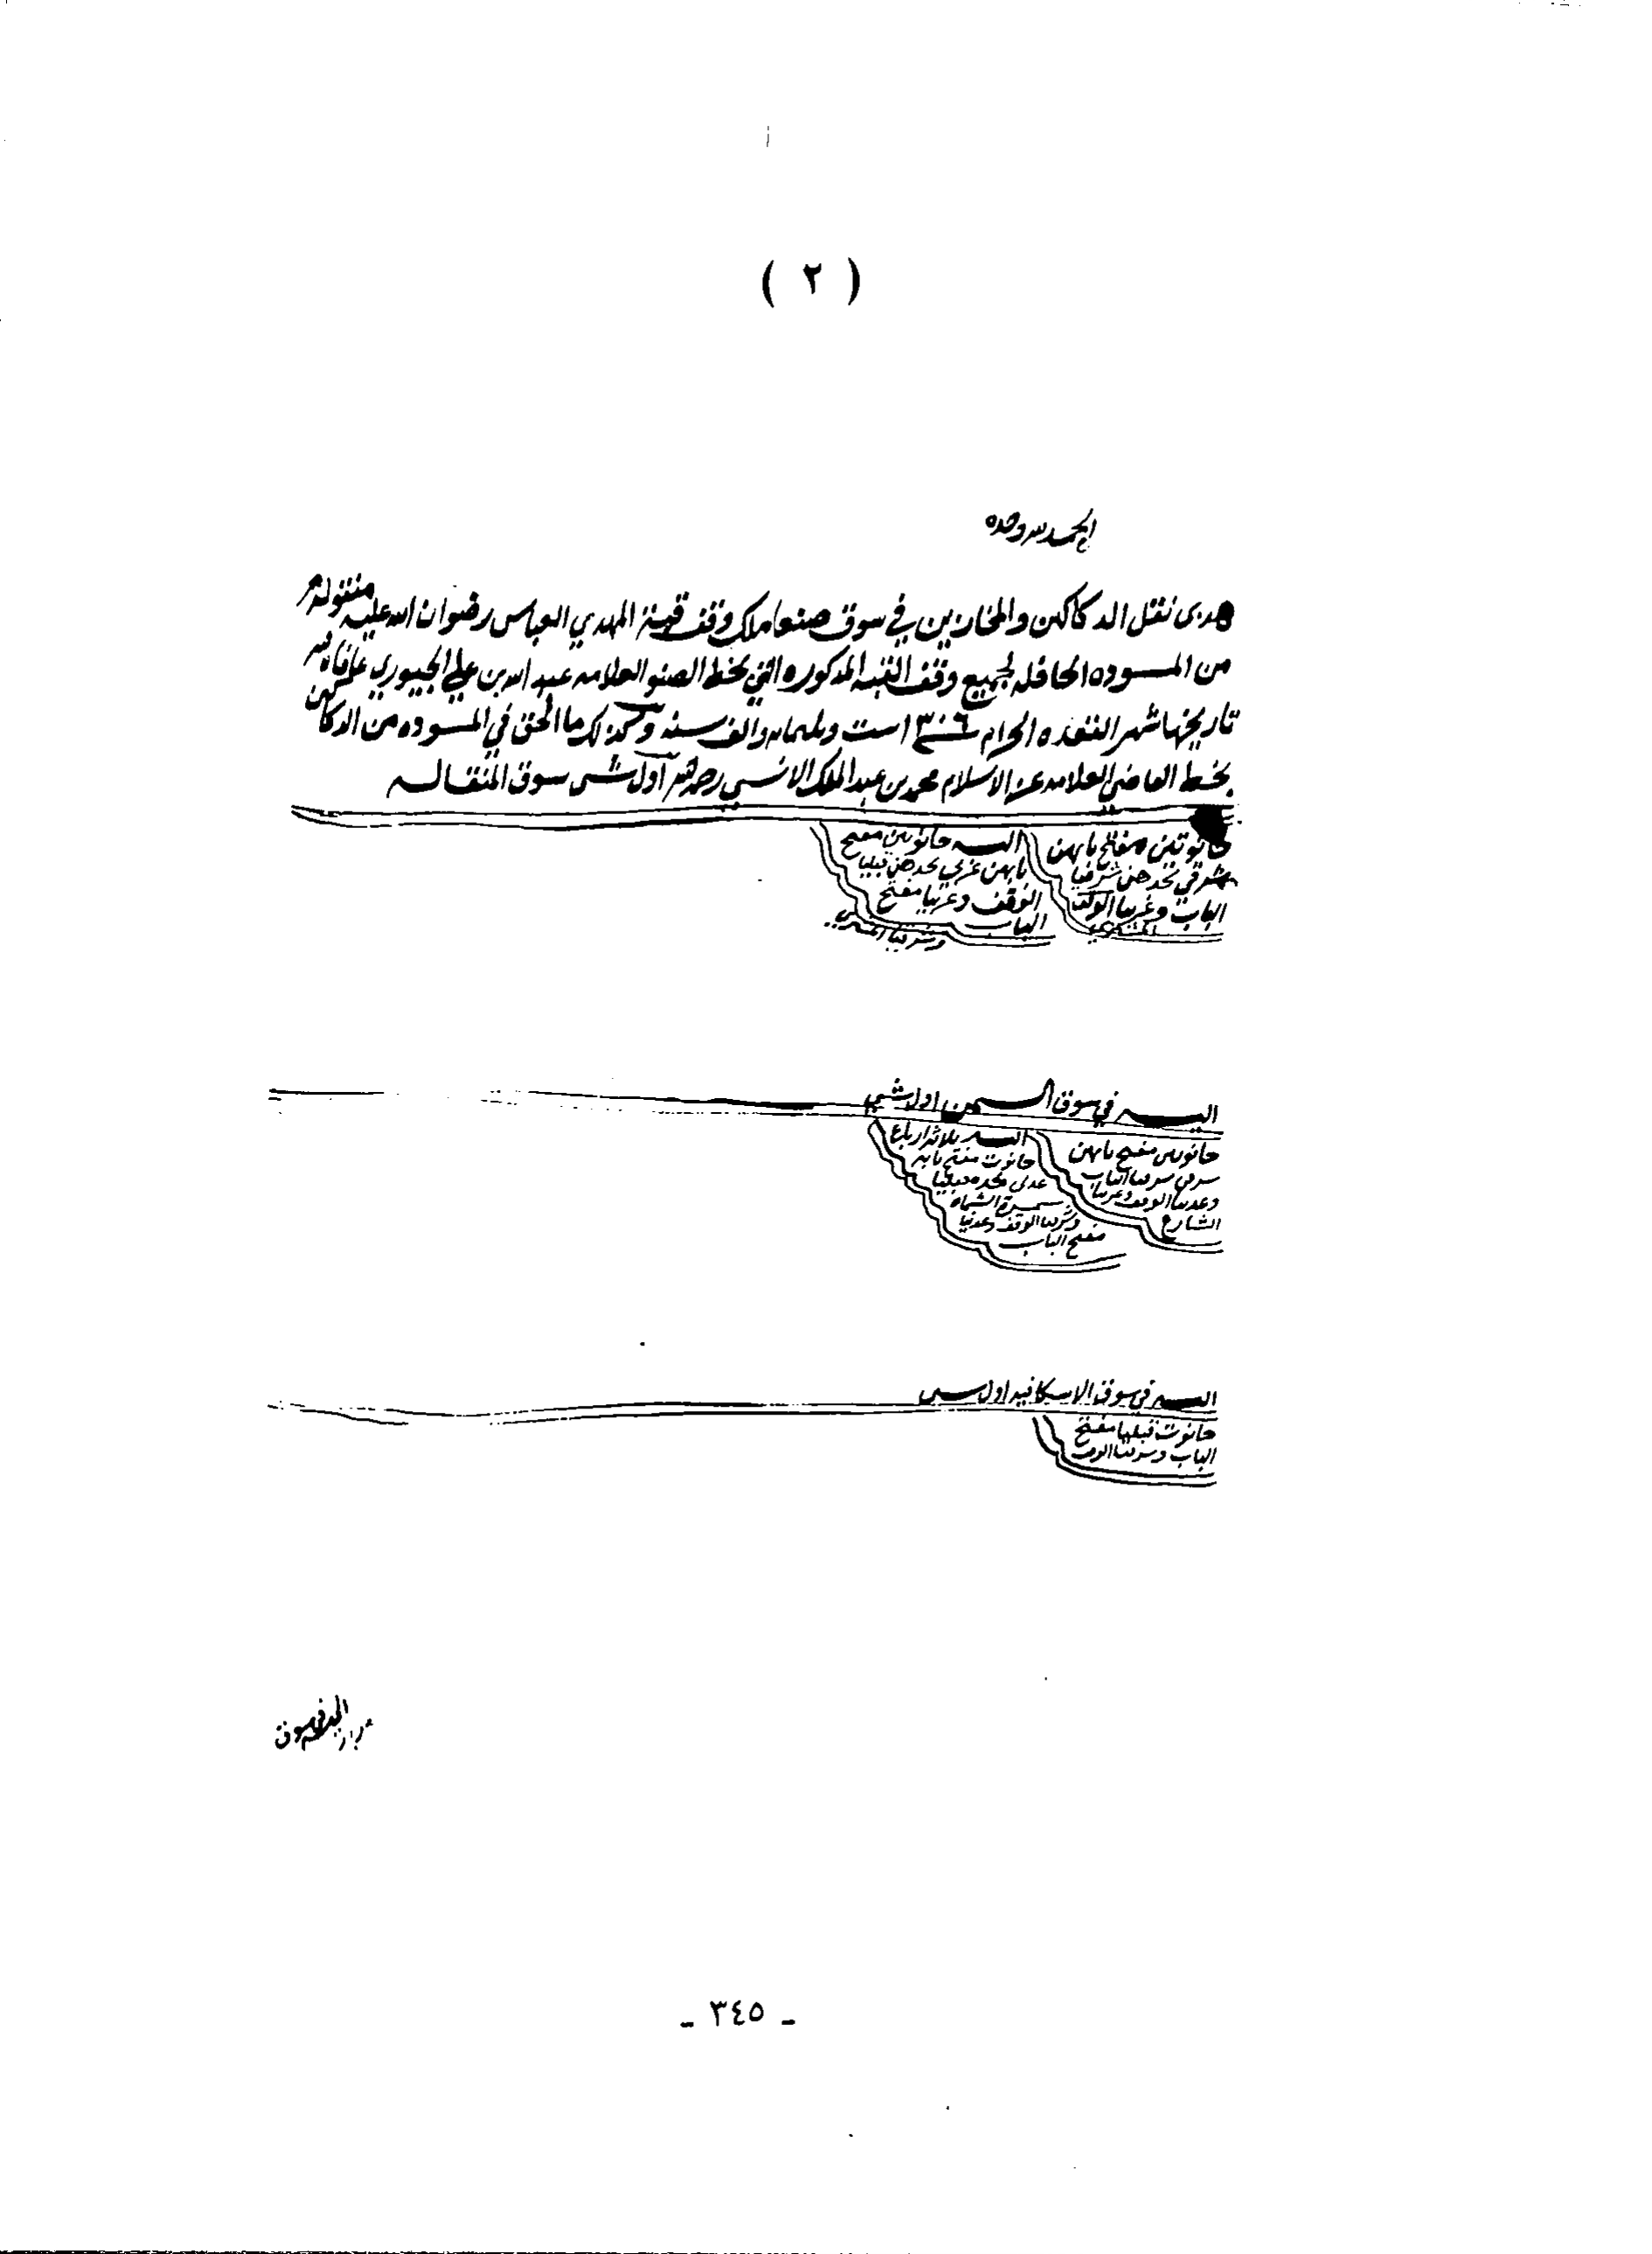 ( ٢ )
الحمد لله وحده
هدى نقل الدكاكين والمخازين في سوق صنعا ملك وقف قبة المهدي العباس رضوان الله عليه منقوله
من المسوده الحافله لجميع وقف القبه المذكوره التي بخط الصنو العلامه عبد الله بن علي الجيوري عافاه الله
تاريخها شهر القعده الحرام ١٣٠٦ ست وثلثمائه والف سنه وكذلك ما الحق في المسوده من الدكاكين
بخط القاضي العلامه عز الاسلام محمد بن عبد الملك الانسي رحمه الله اول شي سوق المنقاله
حانوتين مفاتح بابهن
شرقي تحدهن شرقيا
الباب وغربيا الوقف
اليه حانوتين مفتح
بابهن غربي تحدهن قبليا
الوقف وغربيا مفتح
الباب
وشرقيا
اليه في سوق السمن اول شي
حانوتين مفتح بابهن
شرقي شرقيا الباب
وعدنيا الوقف وغربيا
الشارع
اليه ثلاثة ارباع
حانوت مفتح بابه
عدني تحده قبليا
سمسرة
وشرقيا الوقف وعدنيا
مفتح الباب
اليه في سوق الاسكافيه اول شي
حانوت قبليا مفتح
الباب وشرقيا الوقف
في سوق
- ٣٤٥ -